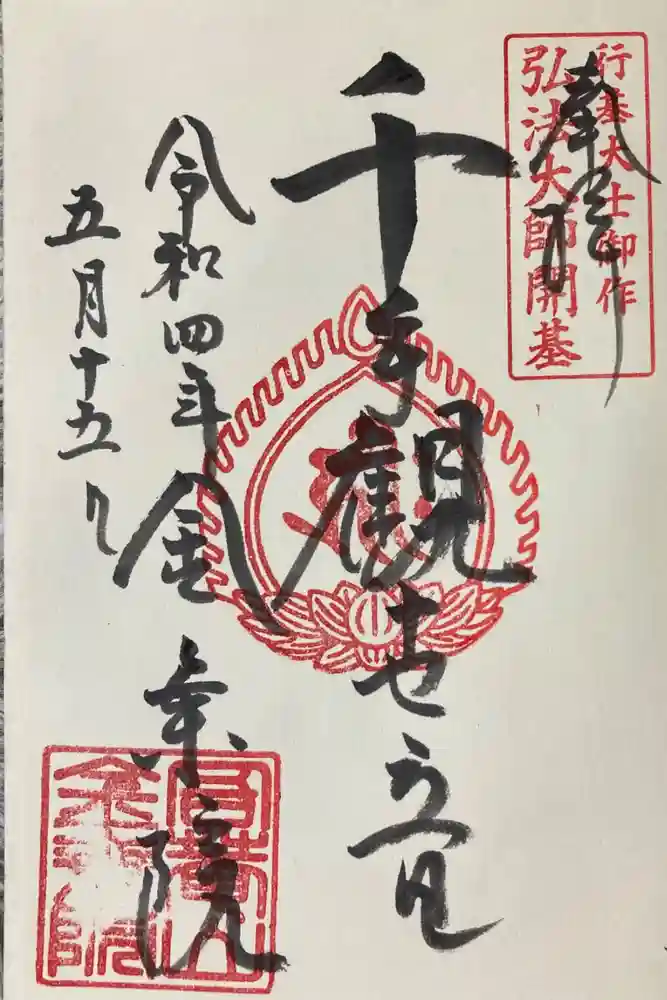 奉拝
行基大士御作
弘法大師開基
千手觀世音
令和四年
五月十五日
金乗院